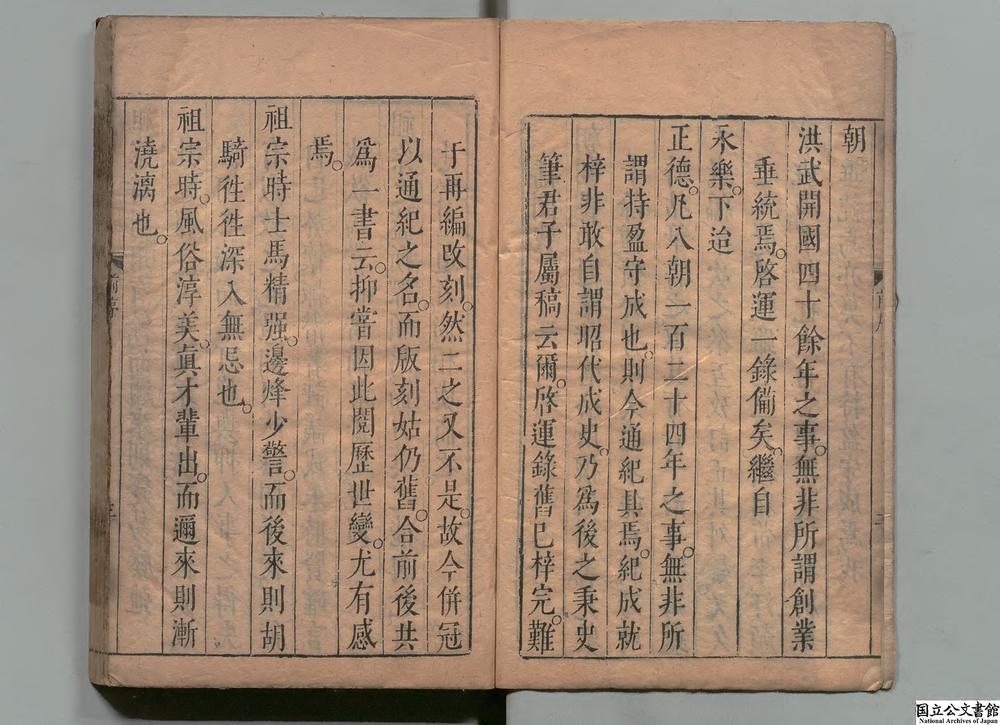 朝
洪武開國四十餘年之事。無非所謂創業
垂統焉。啓運一錄備矣。繼自
永樂。下迨
正德。凡八朝一百二十四年之事。無非所
謂持盈守成也。則今通紀具焉。紀成就
梓非敢自謂昭代成史。乃爲後之秉史
筆君子屬稿云爾。啓運錄舊已梓完。難
于再編改刻。然二之又不是。故今併冠
以通紀之名。而版刻姑仍舊。合前後共
爲一書云。抑嘗因此閱歷世變。尤有感
焉。
祖宗時士馬精强。邊烽少警。而後來則胡
騎徃徃深入無忌也。
祖宗時。風俗淳美。眞才輩出。而邇來則漸
澆漓也。
国立公文書館
National Archives of Japan